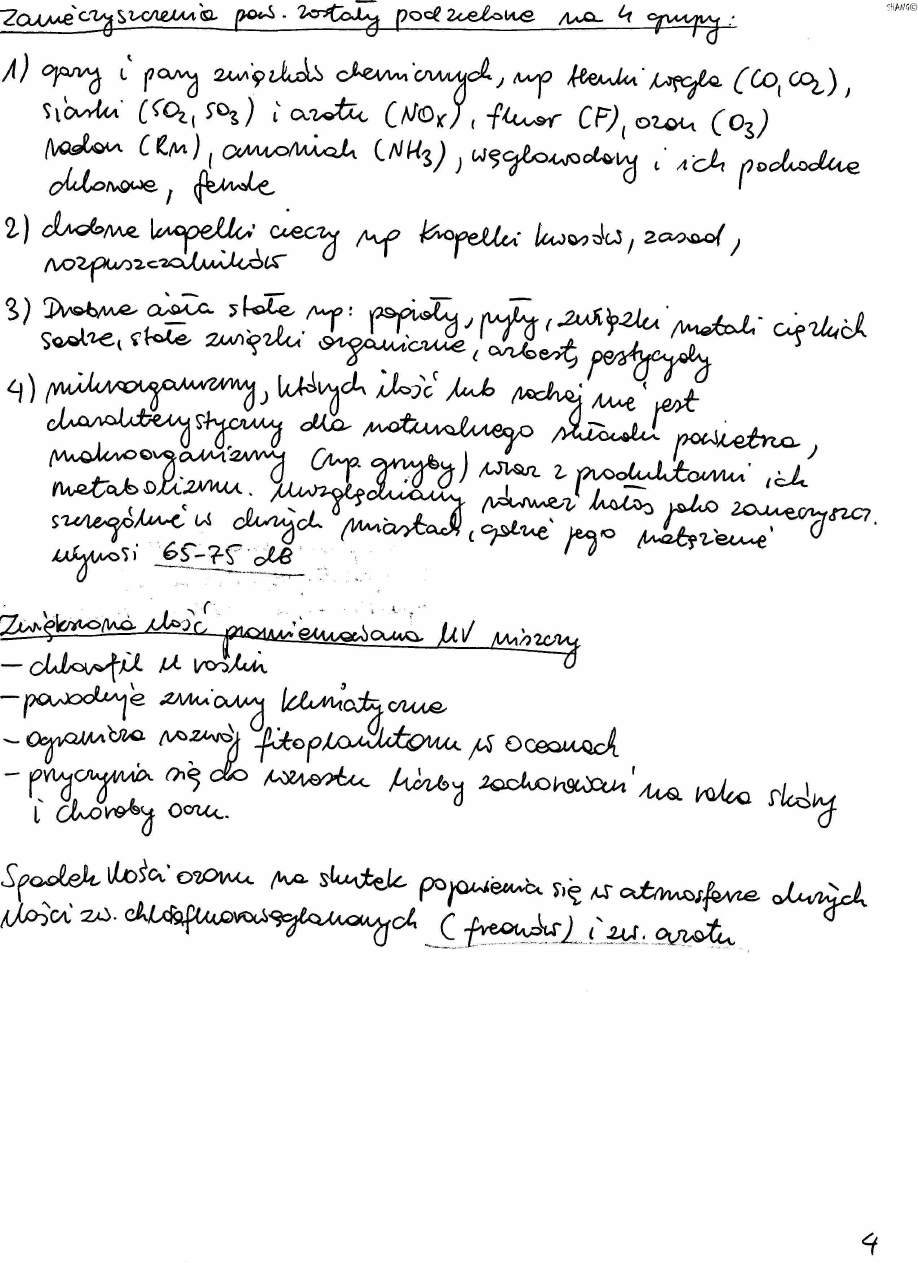 SHANG©
Zanieczyszczenia pow. zostały podzielone na 4 grupy:
1) gazy i pary związków chemicznych, np tlenki węgla (CO, CO2),
siarki (SO2, SO3) i azotu (NOx), fluor (F), ozon (O3)
Radon (Rn), amoniak (NH3), węglowodory i ich pochodne
chlorowe, fenole
2) drobne kropelki cieczy np kropelki kwasów, zasad,
rozpuszczalników
3) Drobne ciała stałe np: popioły, pyły, związki metali ciężkich
sadze, stałe związki organiczne, azbest, pestycydy
4) mikroorganizmy, których ilość lub rodzaj nie jest
charakterystyczny dla naturalnego składu powietrza,
makroorganizmy (np. grzyby) wraz z produktami ich
metabolizmu. Uwzględniamy również hałas jako zanieczyszcz.
szczególnie w dużych miastach, gdzie jego natężenie
wynosi 65-75 dB
Zwiększona ilość promieniowania UV niszczy
– chlorofil u roślin
– powoduje zmiany klimatyczne
– ogranicza rozwój fitoplanktonu w oceanach
– przyczynia się do wzrostu liczby zachorowań na raka skóry
i choroby oczu.
Spadek ilości ozonu na skutek pojawienia się w atmosferze dużych
ilości zw. chlorofluorowęglowanych (freonów) i zw. azotu
4